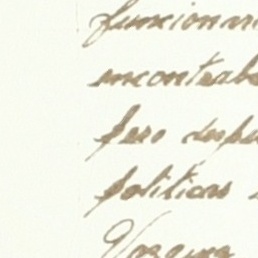 funcionari
encontrab
pero despu
politicas